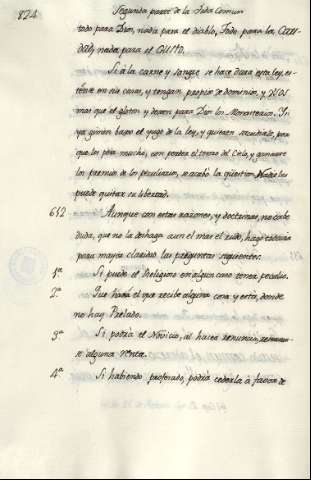 824 Segunda parte de la Vida Comun
todo para Dios, nada para el diablo, Todo para la Cari-
dad, y nada para el GUSTO.
Si á la carne y sangre se hace dura esta ley, es-
tense en sus casas, y tengan propio de dominio, y
mas que el gloton y dexen para Dios los Monasterios. Si
ya gimen bajo el yugo de la ley, y quieren sacudirlo, por
que les pesa mucho, con perder el censo del Cielo, y
los premios de los peculiarios, se acabó la question Nadie les
puede quitar su libertad.
652. Aunque con estas razones, y doctrinas, no cabe
duda, que no la deshaga aun el mas el rudo, hago todavia
para mayor claridad, las preguntas siguientes:
1ª. Si puede el Religioso en algun caso tener peculio.
2ª. Que hará el que recibe alguna cosa, y está donde
no hay Prelado.
3ª. Si podria el Novicio, al hacer renuncia, reservar-
se alguna renta.
4ª. Si habiendo profesado, podria cederla á favor de